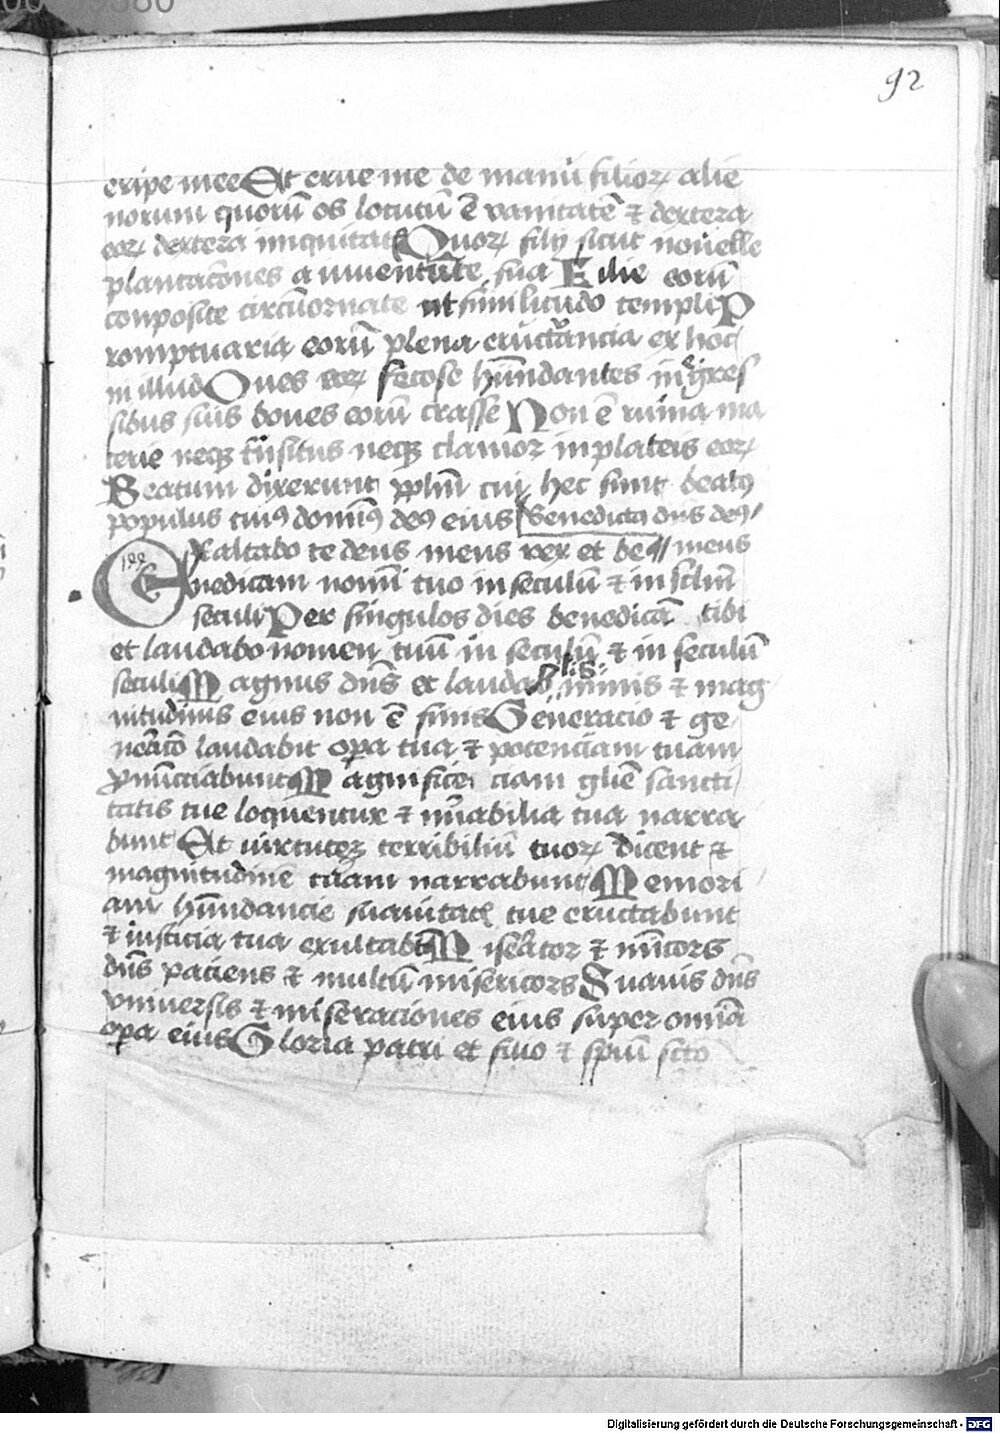 92
eripe me Et erue me de manu filioꝝ alie
norum quorū os locutū ē vanitatē ⁊ dextera
eoꝝ dextera iniquitatis Quoꝝ filij sicut nouelle
plantacōnes a iuuentute sua Filie eorū
conposite circūornate ut similitudo templi P
romptuaria eorū plena eructancia ex hoc
in illud Oues eoꝝ fetose habūndantes in egres
sibus suis boues eorū crasse Non ē ruina ma
cerie neqꝫ trāsitus neqꝫ clamor in plateis eoꝝ
Beatum dixerunt pplm̄ cui hec sunt beatꝰ
populus cuiꝰ domīnꝰ deꝰ eius Benedictꝰ dn̄s deꝰ
Exaltabo te deus meus rex et be // meus
nedicam nomini tuo in seculū ⁊ in sclm̄
seculi Per singulos dies benedicā tibi
et laudabo nomen tuū in seculū ⁊ in seculū
seculi Magnus dn̄s et laudabilis nimis ⁊ mag
nitudinis eius non ē finis Generacio ⁊ ge
neracō laudabit opera tua ⁊ potenciam tuam
pronūcciabunt Magnificenciam glīe sancti
tatis tue loquentur ⁊ mirabilia tua narra
bunt Et uirtutem terribiliū tuoꝝ dicent ⁊
magnitudinē tuam narrabunt Memori
am habūndancie suauitatis tue eructabunt
⁊ iusticia tua exultabūt Miserator ⁊ miscors
dn̄s paciens ⁊ multū misericors Suauis dn̄s
vniuersis ⁊ miseraciones eius super omnia
opera eius Gloria patri et filio ⁊ spūi scto
Digitalisierung gefördert durch die Deutsche Forschungsgemeinschaft - DFG